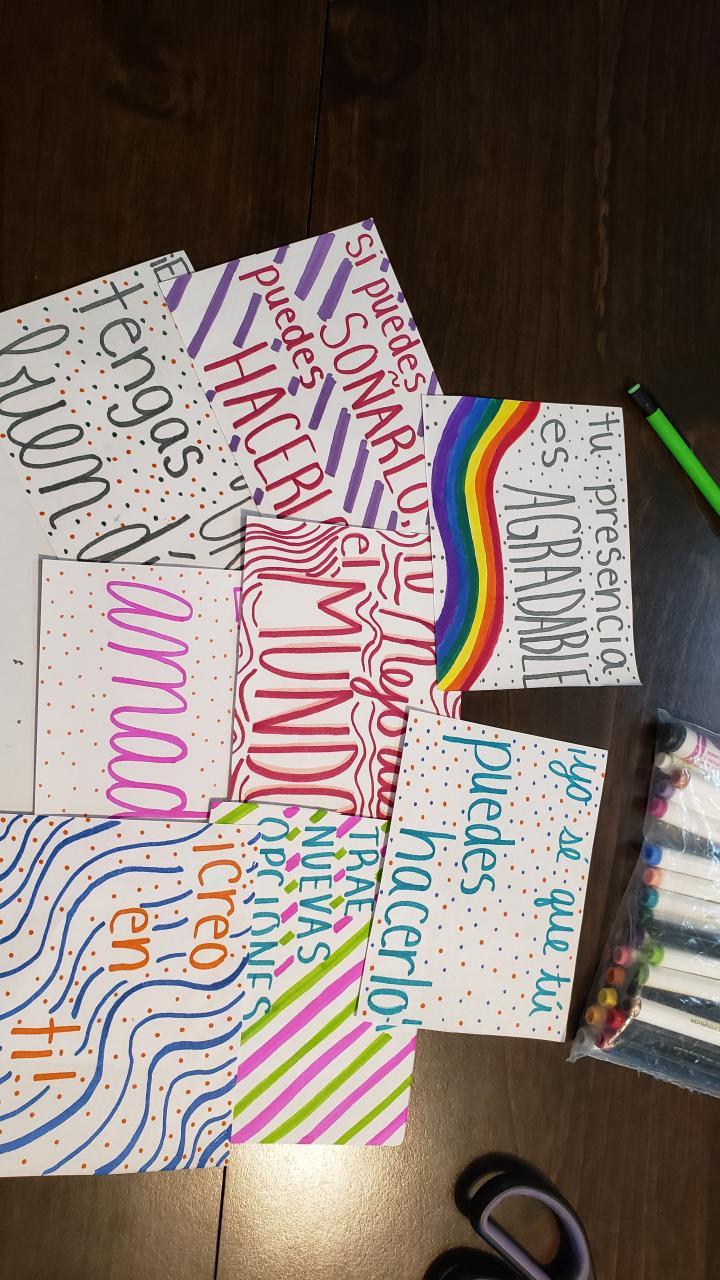 ¡E
tengas
buen dí
Si puedes
SOÑARLO,
puedes
HACERL
tu presencia
es
AGRADABLE
TU
el
MUNDO
amad
¡yo sé que tú
puedes
hacerlo!
TRAE
NUEVAS
OPCIONES
¡Creo
en
ti!